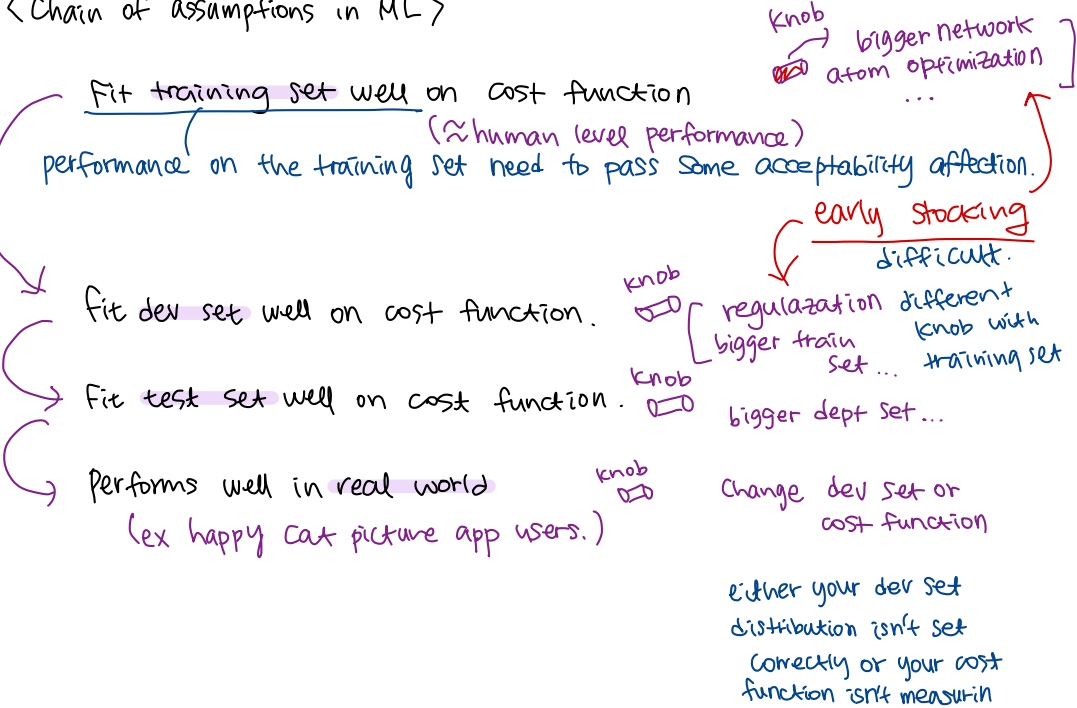 < Chain of assumptions in ML >
knob
bigger network
atom optimization
...
Fit training set well on cost function
(≈human level performance)
performance on the training set need to pass some acceptability affection.
early stocking
difficult.
knob
Fit dev set well on cost function.
regulazation
bigger train
set ...
different
knob with
training set
Fit test set well on cost function.
knob
bigger dept set...
Performs well in real world
(ex happy cat picture app users.)
knob
Change dev set or
cost function
either your dev set
distribution isn't set
correctly or your cost
function isn't measurin